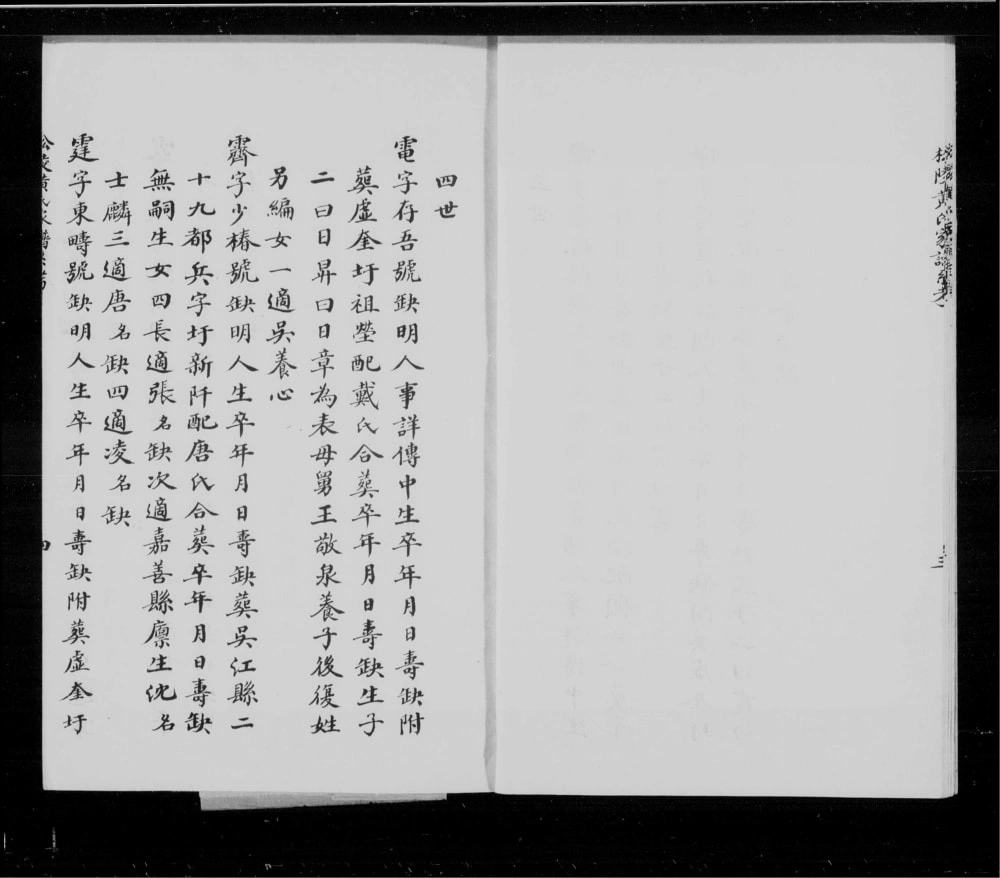 四世
電字存吾號缺明人事詳傳中生卒年月日壽缺附
葬虛奎圩祖塋配戴氏合葬卒年月日壽缺生子
二曰日昇曰日章為表母舅王敬泉養子後復姓
另編女一適吳養心
霽字少椿號缺明人生卒年月日壽缺葬吳江縣二
十九都兵字圩新阡配唐氏合葬卒年月日壽缺
無嗣生女四長適張名缺次適嘉善縣廩生沈名
士麟三適唐名缺四適凌名缺
霆字東疇號缺明人生卒年月日壽缺附葬虛奎圩
四